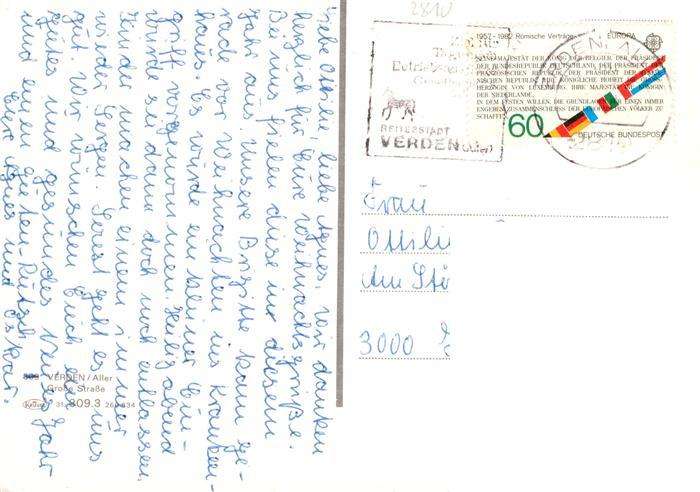 Liebe Otti, liebe Agnes. Wir danken
herzlich für Eure Weihnachtsgrüße.
Bei uns fielen diese in diesem
Jahr aus. Unsere Brigitte kam ge-
rade vor Weihnachten ins Kranken-
haus. Es wurde ein kleiner Ein-
griff vorgenommen. Heilig abend
wurde sie dann doch noch entlassen.
Und zwischen einem immer
wieder liegen. Sonst geht es uns
gut. Wir wünschen Euch ein
gutes und gesundes Neues Jahr
und einen guten Rutsch
Eure Agnes und Oskar.
2810
1957-1982 Römische Verträge
EUROPA
SEINE MAJESTÄT DER KÖNIG DER BELGIER, DER PRÄSIDENT
DER BUNDESREPUBLIK DEUTSCHLAND, DER PRÄSIDENT DER
FRANZÖSISCHEN REPUBLIK, DER PRÄSIDENT DER
REPUBLIK, IHRE KÖNIGLICHE HOHEIT
HERZOGIN VON LUXEMBURG, IHRE MAJESTÄT DIE KÖNIGIN
DER NIEDERLANDE,
IN DEM FESTEN WILLEN, DIE GRUNDLAGEN EINEN IMMER
ENGEREN ZUSAMMENSCHLUSS DER EUROPÄISCHEN VÖLKER ZU
SCHAFFEN
60
DEUTSCHE BUNDESPOST
REITERSTADT
VERDEN (Aller)
VERDEN
Frau
Ottili
Am Stö
3000
309 VERDEN / Aller
Große Straße
Krüger
31.809.3